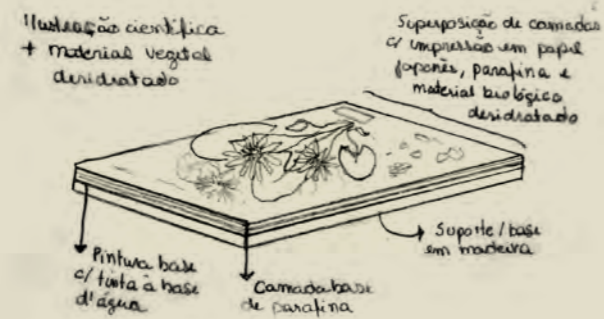 Ilustração científica
+ material vegetal
desidratado
Superposição de camadas
c/ impressão em papel
japonês, parafina e
material biológico
desidratado
Suporte/base
em madeira
Pintura base
c/ tinta à base
d'água
Camada base
de parafina